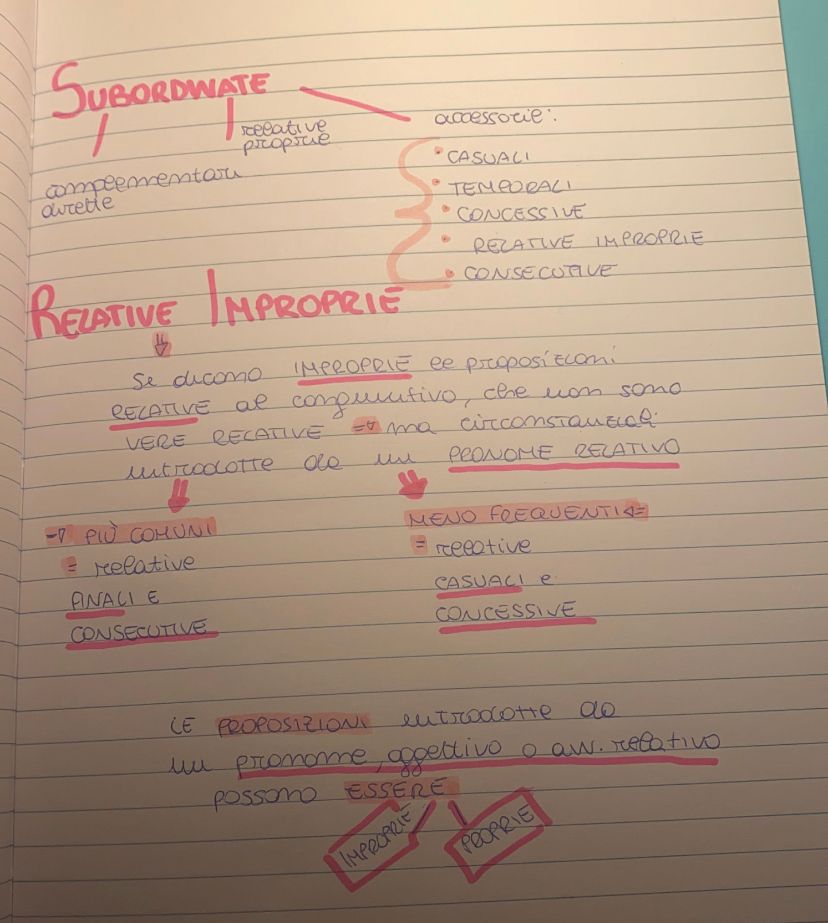 SUBORDINATE
complementari
dirette
relative
proprie
accessorie:
• CASUALI
• TEMPORALI
• CONCESSIVE
• RELATIVE IMPROPRIE
• CONSECUTIVE
RELATIVE IMPROPRIE
Se dicono IMPROPRIE le proposizioni
RELATIVE al congiuntivo, che non sono
VERE RELATIVE ⇒ ma circostanziali
introdotte da un PRONOME RELATIVO
→ PIÙ COMUNI
= relative
FINALI E
CONSECUTIVE
MENO FREQUENTI ⇐
= relative
CASUALI e
CONCESSIVE
LE PROPOSIZIONI introdotte da
un pronome, aggettivo o avv. relativo
possono ESSERE
IMPROPRIE
PROPRIE